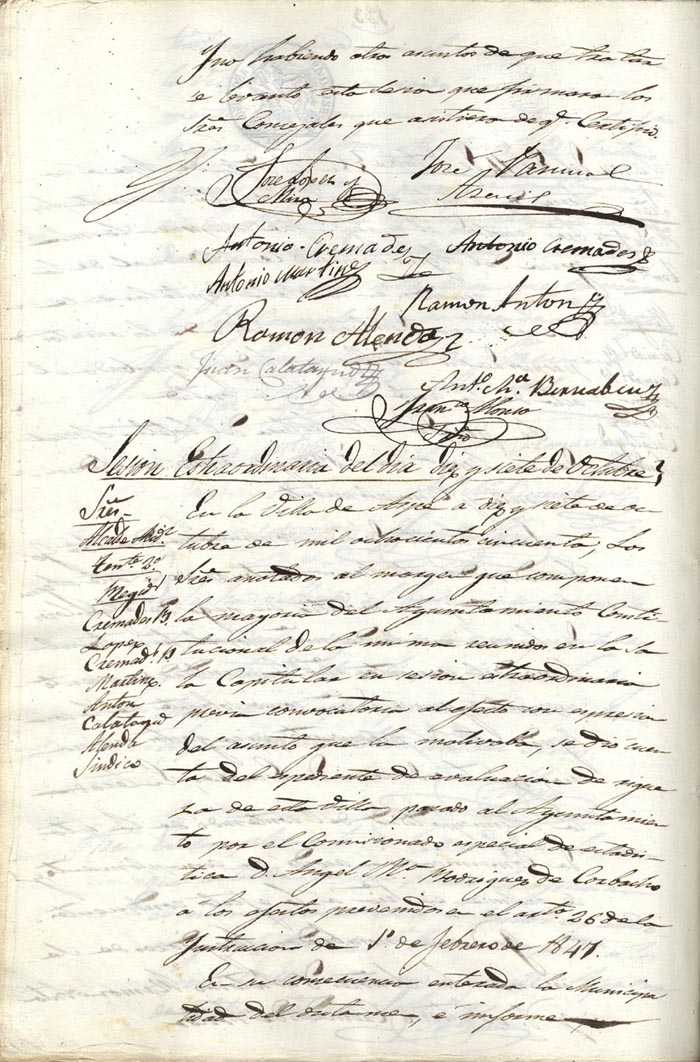 Y no habiendo otros asuntos de que tratar
se levantó esta sesion que firmaron los
Sres Concejales que asistieron de qe. Certifico.
Jose Lopez y
Mira
Jose Pascual
Antonio Cremades
Antonio Cremades
Antonio Martinez
Ramon Anton
Ramon Alenda
Juan Calatayud
Anto. Ma. Bernabeu
Franco Alonso
Sesion Estraordinaria del dia diez y siete de Octubre
Sres
Alcalde
Tente 2º
Cremades
Lopez
Cremades
Martinez
Anton
Calatayud
Alenda
Sindico
En la Villa de Aspe a diez y siete de oc
tubre de mil ochocientos cincuenta, los
Sres anotados al margen que componen
la mayoria del Ayuntamiento Consti
tucional de la misma reunidos en la Sa
la Capitular en sesion estraordinaria
previa convocatoria al efecto con espresion
del asunto que la motivaba, se dio cuen
ta del espediente de evaluacion de rique
za de esta Villa pasado al Ayuntamien
to por el Comisionado especial de estadis
tica D. Angel Ma. Rodriguez de Corbacho
a los efectos prevenidos en el arto 26 de la
Instruccion de 1º de febrero de 1847.
En su consecuencia enterada la Municipa
lidad del dictamen, é informe